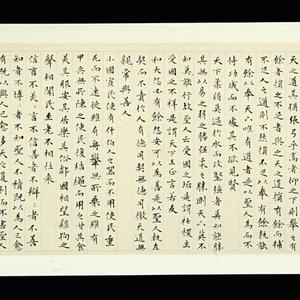 天之道其猶張弓乎高者仰之下則舉
餘者損之不足者與之天之道損有餘而補
不足人之道則不然損不足奉有餘孰能
有餘以奉天下唯有道者是以聖人為而不
恃功成而不處其不欲見賢
天下柔弱莫過於水而攻堅強者莫之能勝
其無以易之弱之勝強柔之勝剛天下莫不
知莫能行故聖人云受國之垢是謂社稷主
受國之不祥是謂天下王正言若反
和大怨必有餘怨安可以為善是以聖人執左
契而不責於人有德司契無德司徹天道無
親常與善人
小國寡民使有什伯人之器而不用使民重
死而不遠徙雖有舟轝無所乘之雖有
甲兵無所陳之使民復結繩而用之甘其食
美其服安其居樂其俗鄰國相望雞狗之
聲相聞民至老不相往來
信言不美美言不信善者不辯辯者不善
知者不博博者不知聖人不積既以為人己愈
有既以與人己愈多天之道利而不害聖人